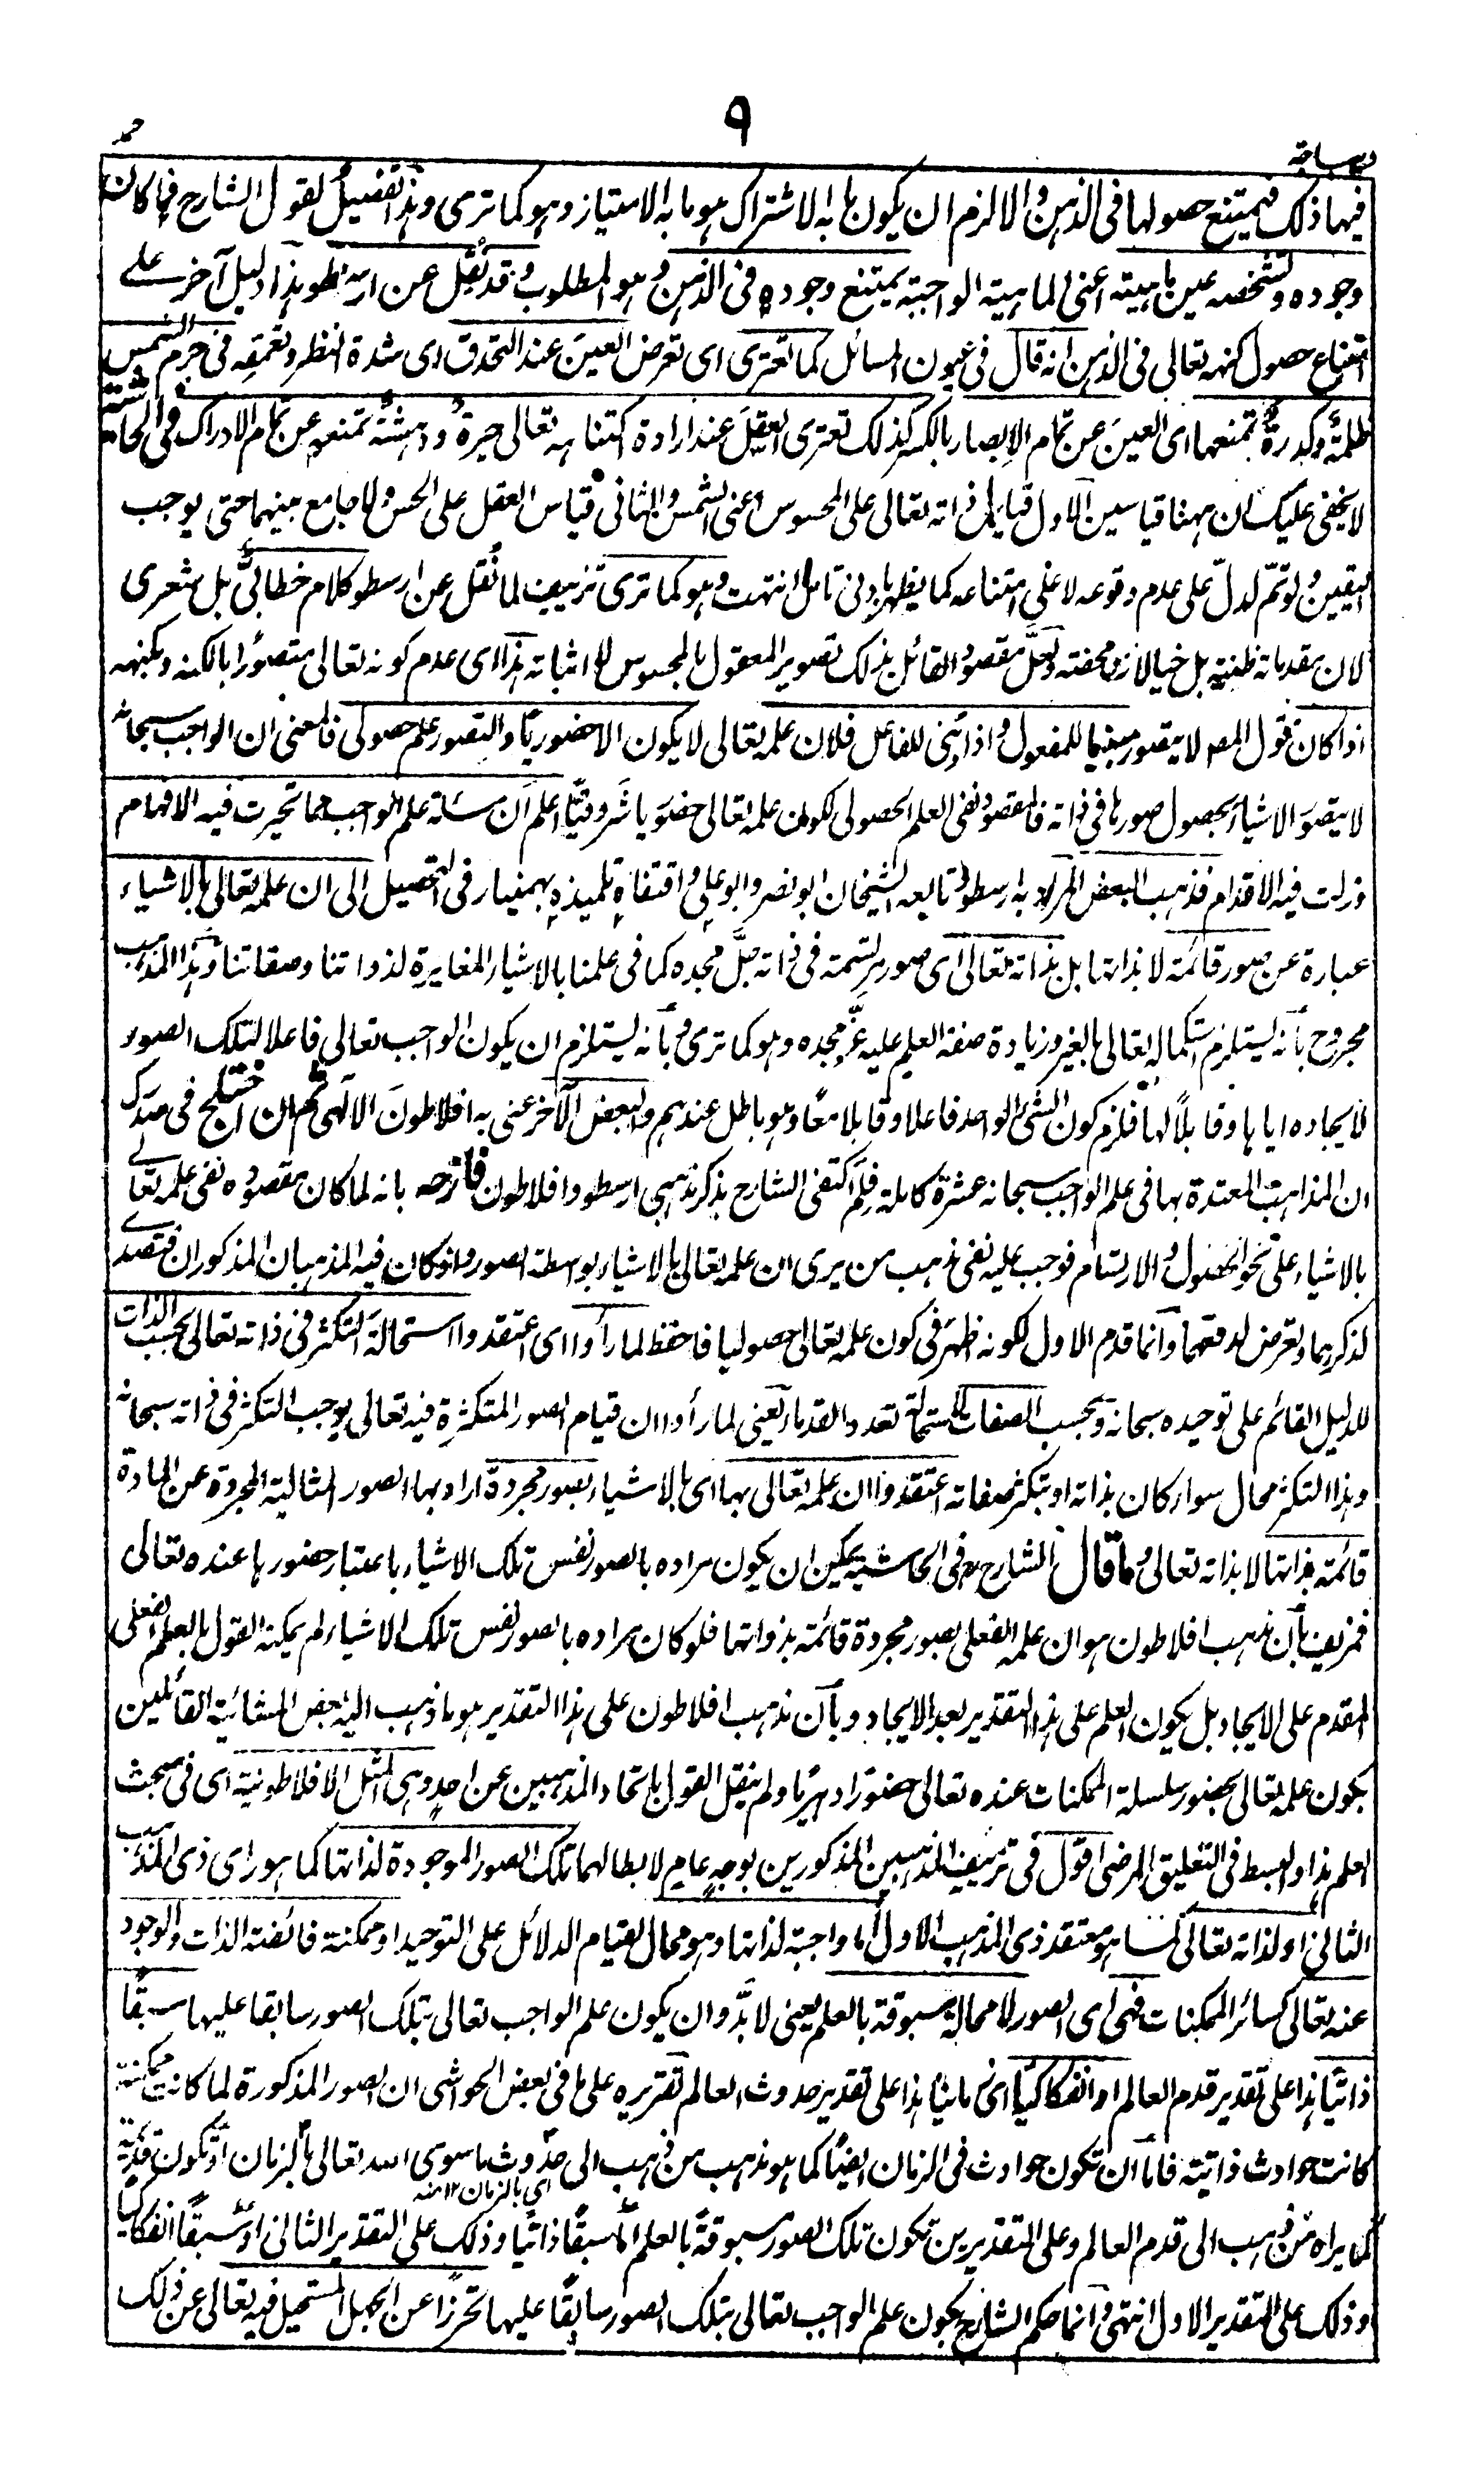 ٩
ديباجة
حمد
فيها ذلك فيمتنع حصولها في الذهن والا لزم ان يكون ما به الاشتراك هو ما به الامتياز وهو كما ترى وهذا تفصيل لقول الشارح فما كان
وجوده وتشخصه عين ماهيته اعنى الماهية الواجبة يمتنع وجوده في الذهن وهو المطلوب وقد نقل عن ارسطو هذا دليل آخر على
امتناع حصول كنهه تعالى في الذهن انه قال في عيون المسائل كما تعترى اى تعرض العين عند التحدق اى شدة النظر وتعمقه في جرم الشمس
ظلمة وكدرة تمنعها اى العين عن تمام الابصار بالكسر كذلك تعترى العقل عند ارادة اكتناهه تعالى حيرة ودهشة تمنعه عن تمام الادراك في الحاشية
لا يخفى عليك ان ههنا قياسين الاول قياس ذاته تعالى على المحسوس اعنى الشمس والثاني قياس العقل على الحس ولا جامع بينهما حتى يوجب
اليقين ولو تم لدل على عدم وقوعه لا على امتناعه كما يظهر بادنى تامل انتهت وهو كما ترى تزييف لما نقل عن ارسطو كلام خطابي بل شعرى
لان مقدماته ظنية بل خيالات محضة ولعل مقصود القائل بذلك تصوير المعقول بالمحسوس لا اثباته هذا اى عدم كونه تعالى متصورا بالكنه وبكنهه
اذا كان قول المصـ لا يتصور مبنيا للمفعول واذا بنى للفاعل فلان علمه تعالى لا يكون الا حضوريا والتصور علم حصولى فالمعنى ان الواجب سبحانه
لا يتصور الاشياء بحصول صورها في ذاته فالمقصود نفى العلم الحصولى لكون علمه تعالى حضوريا اشروقيا اعلم ان مسئلة علم الواجب مما تحيرت فيه الافهام
وزلت فيه الاقدام فذهب البعض المراد به ارسطو وتابعه الشيخان ابو نصر وابو على واقتفاه تلميذه بهمنيار في التحصيل الى ان علمه تعالى بالاشياء
عبارة عن صور قائمة لا بذاتها بل بذاته تعالى اى صور مرتسمة في ذاته جل مجده كما في علمنا بالاشياء المغايرة لذواتنا وصفاتنا وهذا المذهب
مجروح بأنه يستلزم استكماله تعالى بالغير وزيادة صفة العلم عليه عز مجده وهو كما ترى وبأنه يستلزم ان يكون الواجب تعالى فاعلا لتلك الصور
لايجاده اياها وقابلا لها فلزم كون الشئ الواحد فاعلا وقابلا معا وهو باطل عندهم والبعض الآخر عنى به افلاطون الالهى ثم ان اختلج في صدرك
ان المذاهب المعتدة بها في علم الواجب سبحانه عشرة كاملة فلم اكتفى الشارح بذكر مذهبى ارسطو وافلاطون فازحه بانه لما كان مقصوده نفى علمه تعالى
بالاشياء على نحو الحصول والارتسام فوجب عليه نفى مذهب من يرى ان علمه تعالى بالاشياء بواسطة الصور واذ كان فيه المذهبان المذكوران فتصدى
لذكرهما وتعرض لدفعهما وانما قدم الاول لكونه اظهر في كون علمه تعالى حصوليا فاحفظ لما رأوا اى اعتقدوا استحالة التكثر في ذاته تعالى بحسب الذات
للدليل القائم على توحيده سبحانه وبحسب الصفات لاستحالة تعدد القدماء يعنى لما رأوا ان قيام الصور المتكثرة فيه تعالى يوجب التكثر في ذاته سبحانه
وهذا التكثر محال سواء كان بذاته او بتكثر صفاته اعتقدوا ان علمه تعالى بها اى بالاشياء بصور مجردة اراد بها الصور المثالية المجردة عن المادة
قائمة بذاتها لا بذاته تعالى وما قال الشارح في الحاشية يمكن ان يكون مراده بالصور نفس تلك الاشياء باعتبار حضورها عنده تعالى
فمزيف بأن مذهب افلاطون هو ان علمه الفعلى بصور مجردة قائمة بذواتها فلو كان مراده بالصور نفس تلك الاشياء لم يمكنه القول بالعلم الفعلى
المقدم على الايجاد بل يكون العلم على هذا التقدير بعد الايجاد وبأن مذهب افلاطون على هذا التقدير هو ما ذهب اليه بعض المشائية القائلين
بكون علمه تعالى بحضور سلسلة الممكنات عنده تعالى حضورا دهريا ولم ينقل القول باتحاد المذهبين عن احد وهى المثل الافلاطونية اى في مبحث
العلم هذا والبسط في التعليق المرضى اقول في تزييف المذهبين المذكورين بوجه عام لابطالهما تلك الصور الموجودة لذاتها كما هو راى ذى المذهب
الثانى او لذاته تعالى كما هو معتقد ذى المذهب الاول اما واجبة لذاتها وهو محال لقيام الدلائل على التوحيد او ممكنة فائضة الذات والوجود
عنه تعالى كسائر الممكنات فهى اى الصور لا محالة مسبوقة بالعلم يعنى لا بد وان يكون علم الواجب تعالى بتلك الصور سابقا عليها سبقا
ذاتيا هذا على تقدير قدم العالم او انفكاكيا اى زمانيا هذا على تقدير حدوث العالم تقريره على ما في بعض الحواشى ان الصور المذكورة لما كانت ممكنة
كانت حوادث ذاتية فاما ان تكون حوادث في الزمان ايضا كما هو مذهب من ذهب الى حدوث ما سوى الله تعالى بالزمان او تكون قديمة
اى بالزمان ١٢ منه
كما يراه من ذهب الى قدم العالم وعلى التقديرين تكون تلك الصور مسبوقة بالعلم اما سبقا ذاتيا وذلك على التقدير الثانى او سبقا انفكاكيا
وذلك على التقدير الاول انتهى وانما حكم الشارح بكون علم الواجب تعالى بتلك الصور سابقا عليها تحرزا عن الجهل المستحيل فيه تعالى عن ذلك